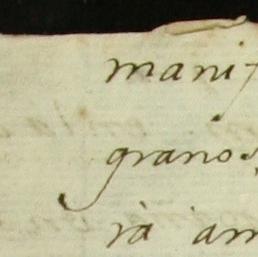 manif
granos
ia am